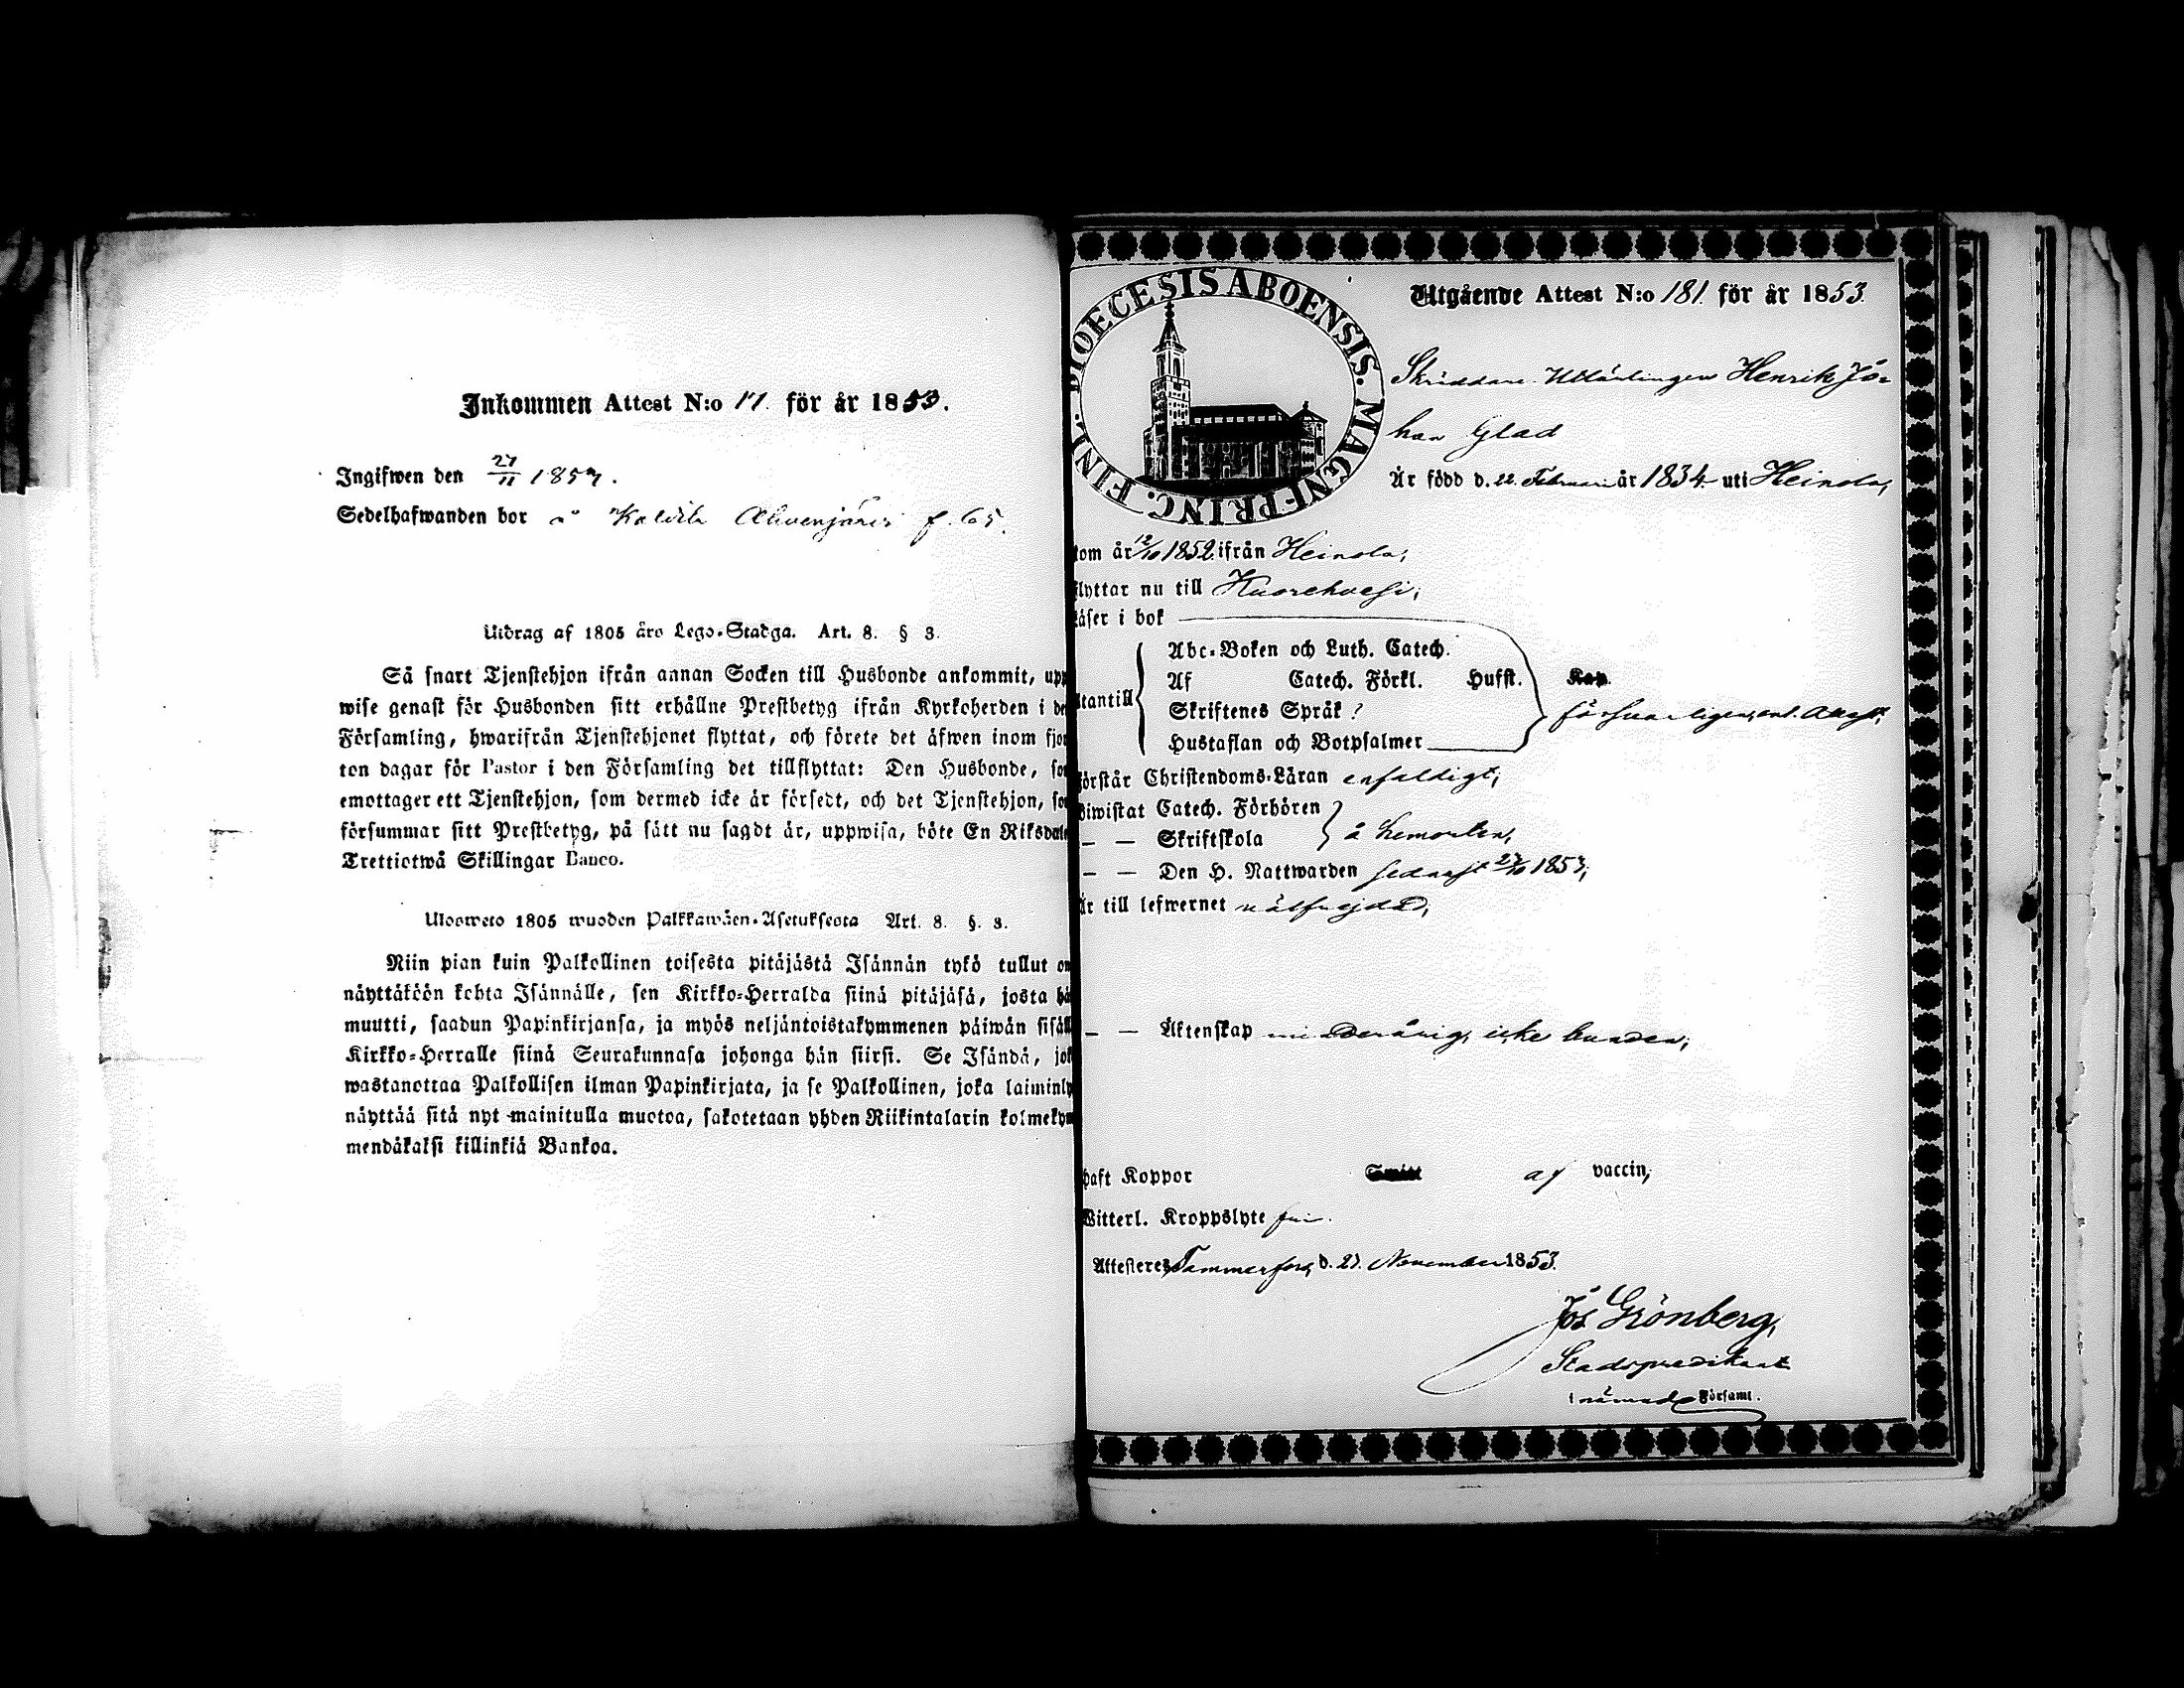 Inkommen Attest N:o 17. för år 1853.
Ingifwen den 27/11 1853.
Sedelhafwanden bor å Ahvenjärvi f. 65.
Utdrag af 1805 års Lego-Stadga. Art. 8. § 3.
Så snart Tjenstehjon ifrån annan Socken till Husbonde ankommit, upp
wise genast för Husbonden sitt erhållne Prestbetyg ifrån Kyrkoherden i de
Församling, hwarifrån Tjenstehjonet flyttat, och förete det äfwen inom fjor
ton dagar för Pastor i den Församling det tillflyttat: Den Husbonde, so
emottager ett Tjenstehjon, som dermed icke är försedt, och det Tjenstehjon, so
försummar sitt Prestbetyg, på sätt nu sagdt är, uppwisa, böte En Riksdale
Trettiotwå Skillingar Banco.
Ulosweto 1805 wuoden Palkkawäen-Asetuksesta Art. 8. §. 3.
Niin pian kuin Palkollinen toisesta pitäjästä Isännän tykö tullut on
näyttäköön kohta Isännälle, sen Kirkko-Herralda siinä pitäjäsä, josta hä
muutti, saadun Papinkirjansa, ja myös neljäntoistakymmenen päiwän sisäll
Kirkko-Herralle siinä Seurakunnasa johonga hän siirsi. Se Isändä, jok
wastanottaa Palkollisen ilman Papinkirjata, ja se Palkollinen, joka laiminly
näyttää sitä nyt mainitulla muotoa, sakotetaan yhden Riikintalarin kolmekym
mendäkaksi killinkiä Bankoa.
DIOECESIS ABOENSIS. MAGNI PRINC. FINL.
Utgående Attest N:o 181. för år 1853.
Skräddare Utlärlingen Henrik Jo-
han Glad
Är född d. 22. Februari år 1834. uti Heinola,
kom år 12/10 1852. ifrån Heinola;
flyttar nu till Kuorehvesi;
läser i bok
Abc-Boken och Luth. Catech.
Af Catech. Förkl. Husst. Kap.
utantill Skriftenes Språk försvarligen, enl. Attest;
Hustaflan och Botpsalmer
förstår Christendoms-Läran enfaldigt;
biwistat Catech. Förhören
— — Skriftskola å hemorten,
— — Den H. Nattwarden sednast 23/10 1853;
är till lefwernet wälfrejdad,
— — Äktenskap minderårig, icke bunden;
haft Koppor Smitt af vaccin,
Witterl. Kroppslyte fri.
Attesteres Tammerfors, d. 27. November 1853.
Jos Grönberg,
Stadspredikant
i nämnde Församl.